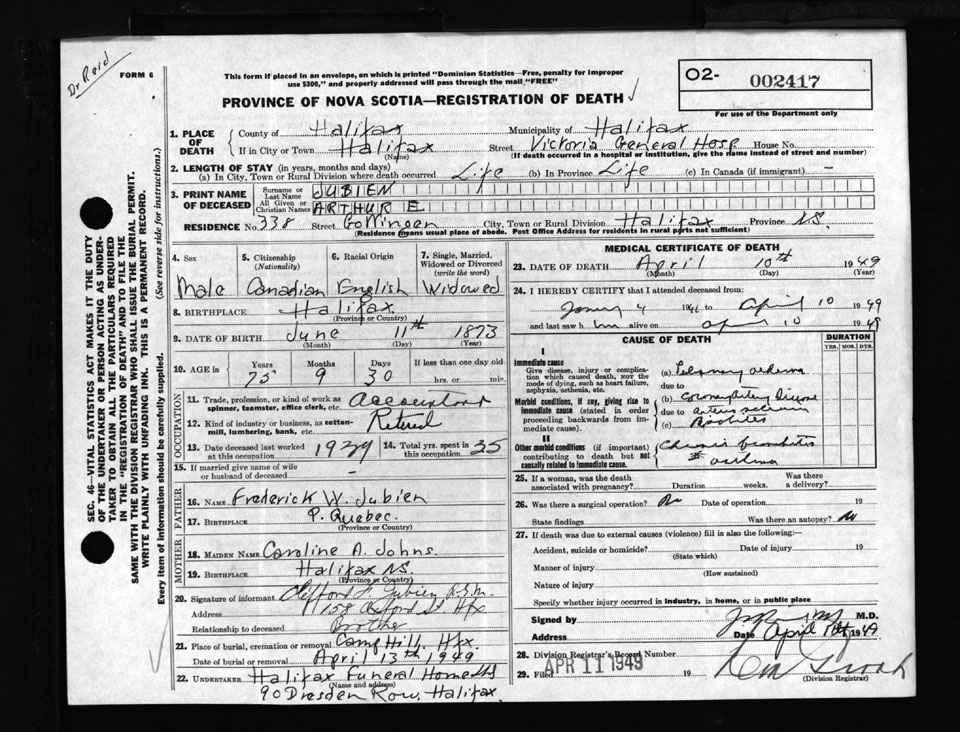 Dr Reid
FORM 6
This form if placed in an envelope, on which is printed "Dominion Statistics—Free, penalty for improper
use $300," and properly addressed will pass through the mail "FREE"
O2- 002417
For use of the Department only
PROVINCE OF NOVA SCOTIA—REGISTRATION OF DEATH
1. PLACE OF DEATH
County of Halifax Municipality of Halifax
If in City or Town Halifax Street Victoria General Hosp House No.
(Name) (If death occurred in a hospital or institution, give the name instead of street and number)
2. LENGTH OF STAY (in years, months and days)
(a) In City, Town or Rural Division where death occurred Life (b) In Province Life (c) In Canada (if immigrant) —
3. PRINT NAME OF DECEASED
Surname or Last Name JUBIEN
All Given or Christian Names ARTHUR E
RESIDENCE No. 338 Street Gottingen City, Town or Rural Division Halifax Province N.S.
(Residence means usual place of abode. Post Office Address for residents in rural parts not sufficient)
4. Sex 5. Citizenship (Nationality) 6. Racial Origin 7. Single, Married, Widowed or Divorced (write the word)
Male Canadian English Widowed
8. BIRTHPLACE Halifax
(Province or Country)
9. DATE OF BIRTH June 11th 1873
(Month) (Day) (Year)
10. AGE in Years Months Days If less than one day old
75 9 30 hrs. or min.
OCCUPATION
11. Trade, profession, or kind of work as spinner, teamster, office clerk, etc. Accountant
12. Kind of industry or business, as cotton-mill, lumbering, bank, etc. Retired
13. Date deceased last worked at this occupation 1939 14. Total yrs. spent in this occupation 35
15. If married give name of wife or husband of deceased —
FATHER
16. NAME Frederick W. Jubien
17. BIRTHPLACE P. Quebec.
(Province or Country)
MOTHER
18. MAIDEN NAME Caroline A. Johns.
19. BIRTHPLACE Halifax N.S.
(Province or Country)
20. Signature of informant Clifford F. Jubien
Address 158 Oxford St Hfx
Relationship to deceased Brother
21. Place of burial, cremation or removal Camp Hill. Hfx
Date of burial or removal April 13th 1949
22. UNDERTAKER Halifax Funeral Home
(Name and address)
90 Dresden Row, Halifax
MEDICAL CERTIFICATE OF DEATH
23. DATE OF DEATH April 10th 1949
(Month) (Day) (Year)
24. I HEREBY CERTIFY that I attended deceased from:
4 19 to April 10 1949
and last saw him alive on April 10 1949
CAUSE OF DEATH DURATION
YRS. MOS. DYS.
I
Immediate cause
Give disease, injury or complication which caused death, not the mode of dying, such as heart failure, asphyxia, asthenia, etc.
(a) Pulmonary
due to
Morbid conditions, if any, giving rise to immediate cause (stated in order proceeding backwards from immediate cause).
(b) Coronary Disease
due to
(c)
II
Other morbid conditions (if important) contributing to death but not causally related to immediate cause.
Chronic bronchitis
asthma
25. If a woman, was the death associated with pregnancy? Duration weeks. Was there a delivery?
26. Was there a surgical operation? No Date of operation 19
State findings Was there an autopsy? No
27. If death was due to external causes (violence) fill in also the following:—
Accident, suicide or homicide? Date of injury 19
(State which)
Manner of injury
(How sustained)
Nature of injury
Specify whether injury occurred in industry, in home, or in public place
Signed by M.D.
Address Date April 1949
28. Division Registrar's Record Number
29. Filed APR 11 1949 19
(Division Registrar)
SEC. 46—VITAL STATISTICS ACT MAKES IT THE DUTY
OF THE UNDERTAKER OR PERSON ACTING AS UNDER-
TAKER TO OBTAIN ALL THE PARTICULARS REQUIRED
IN THE "REGISTRATION OF DEATH" AND TO FILE THE
SAME WITH THE DIVISION REGISTRAR WHO SHALL ISSUE THE BURIAL PERMIT.
WRITE PLAINLY WITH UNFADING INK. THIS IS A PERMANENT RECORD.
Every item of information should be carefully supplied. (See reverse side for instructions.)